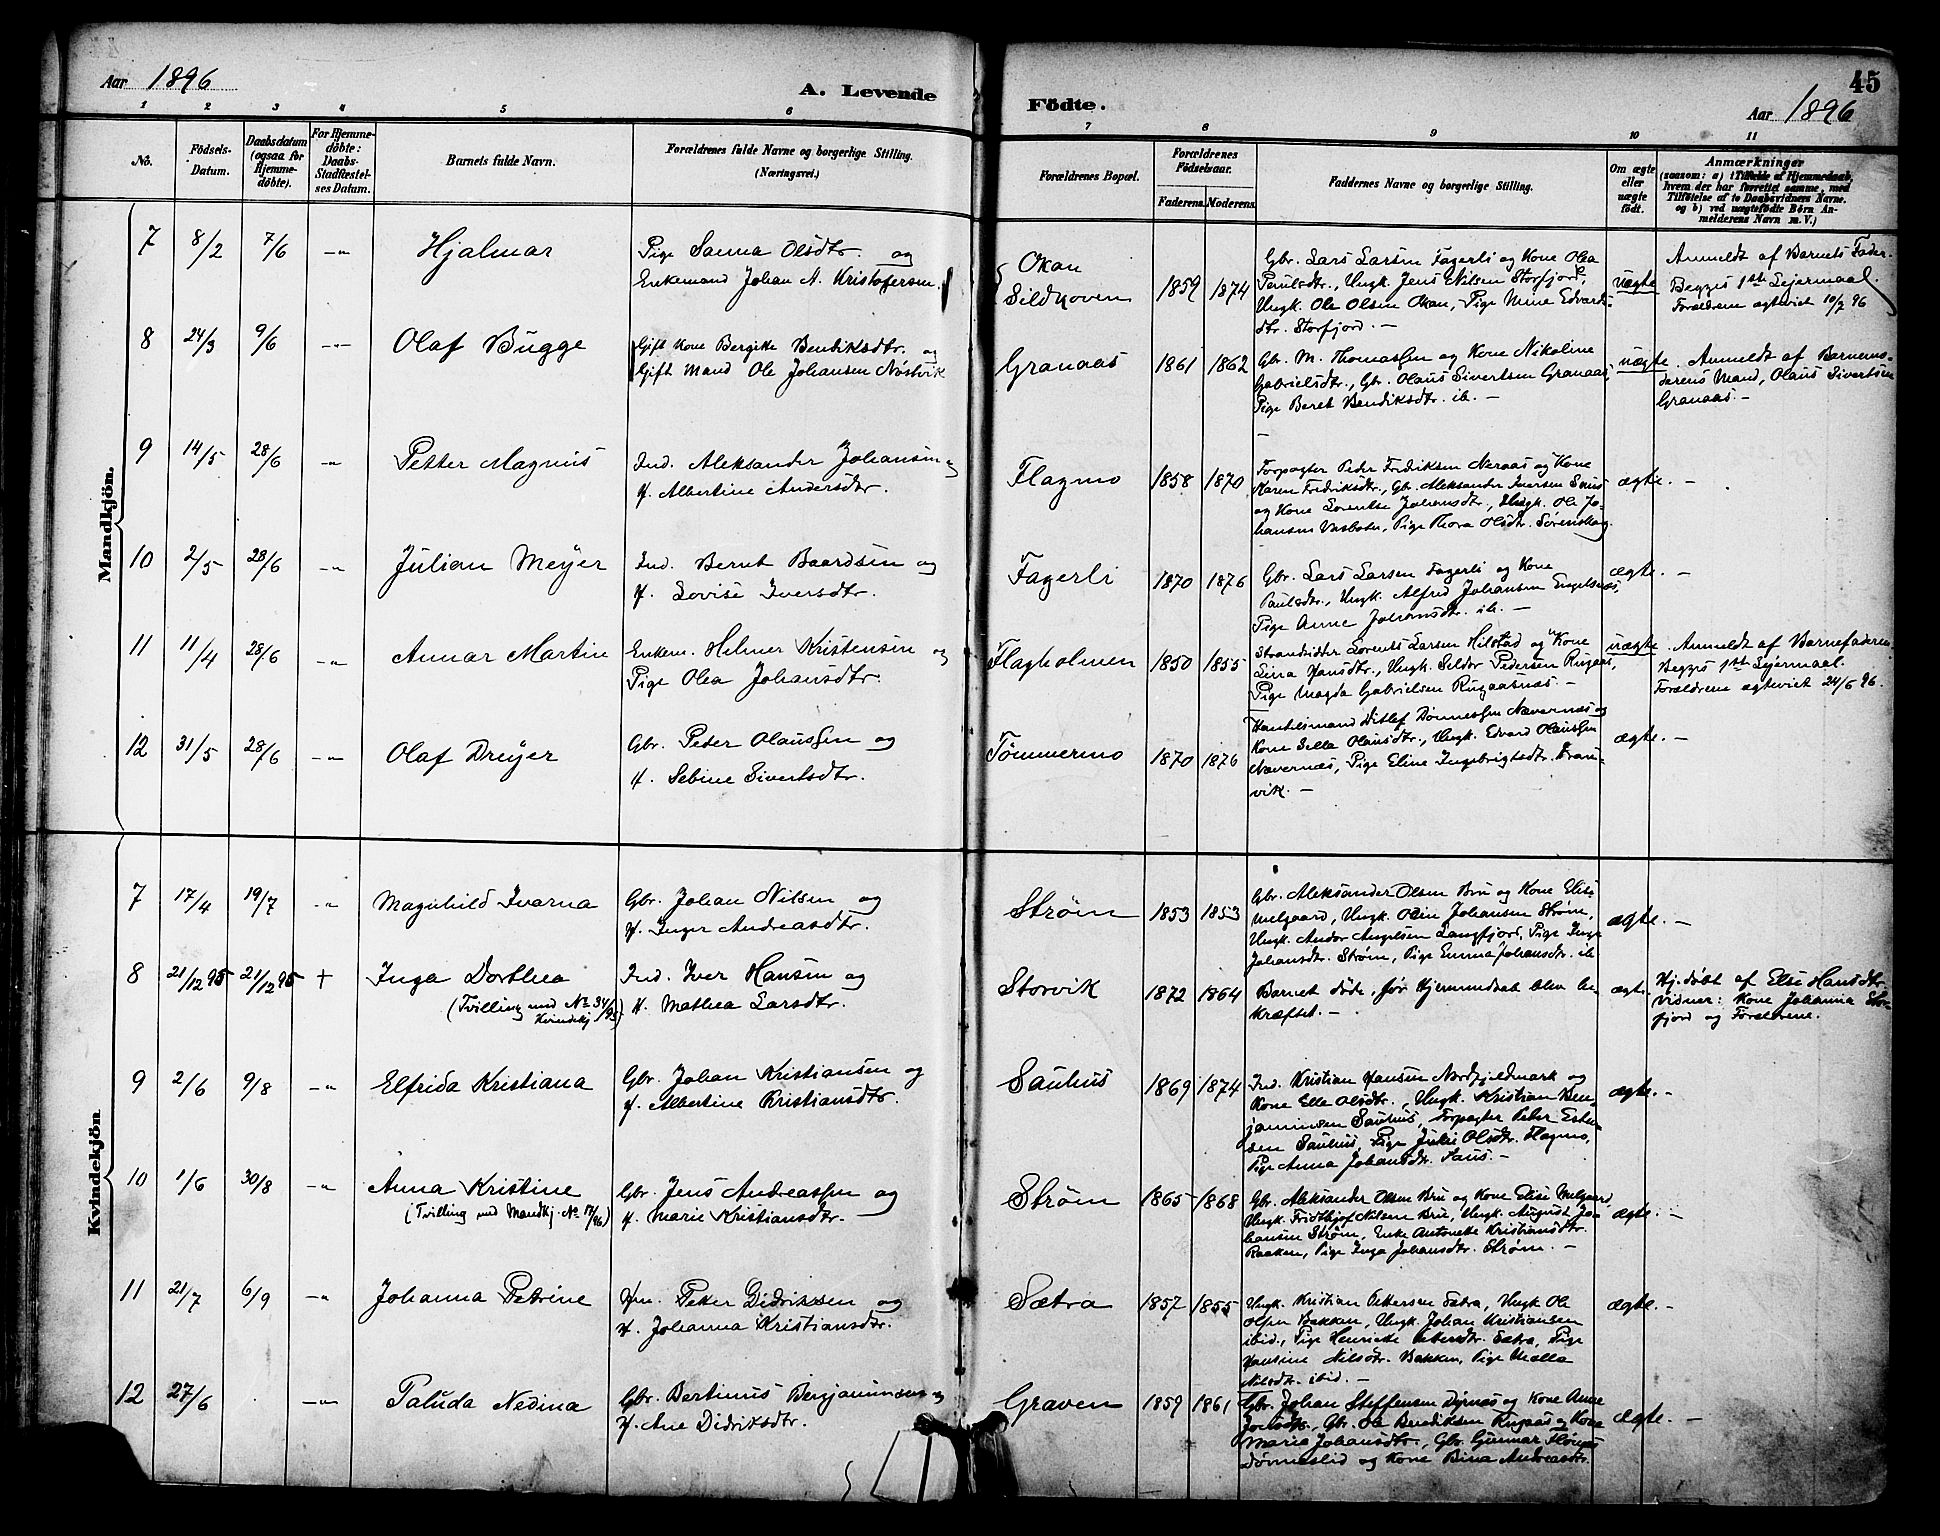 Aar 1896
A. Levende
Födte.
Aar 1896
45
1 2 3 4 5 6 7 8 9 10 11
No.
Födsels-
Datum.
Daabsdatum
(ogsaa for
Hjemme-
döbte).
For Hjemme-
döbte:
Daabs-
Stadfæstel-
ses Datum.
Barnets fulde Navn.
Forældrenes fulde Navne og borgerlige Stilling.
(Næringsvei.)
Forældrenes Bopæl.
Forældrenes
Födselsaar.
Faderens. Moderens.
Faddernes Navne og borgerlige Stilling.
Om ægte
eller
uægte
födt.
Anmærkninger
(saasom: a) i Tilfælde af Hjemmedaab,
hvem der har forrettet samme, med
Tilföielse af to Daabsvidners Navne.
og b) ved uægtefödte Börn An-
melderens Navn m. V.)
Mandkjön.
7 8/2 7/6 -"- Hjalmar
Pige Sanna Olsdtr. og
Enkemand Johan A. Kristofersen.
Okan
Sildhoven
1859 1874
Gbr. Lars Larsen Fagerli og Kone Olea
Paulsdtr., Ungk. Jens Nilsen Storfjord,
Ungk. Ole Olsen Okan, Pige Mine Edvards-
dtr. Storfjord. -
uægte
Anmeldt af Barnets Fader.
Begges 1ste Lejermaal.
Forældrene ægteviet 10/7 96
8 24/3 9/6 -"- Olaf Bugge
Gift Kone Bergitte Bendiksdtr. og
Gift Mand Ole Johansen Nostvik
Granaas
1861 1862
Gbr. M. Thomassen og Kone Nikoline
Gabrielsdtr., Gbr. Olaus Sivertsen Granaas,
Pige Beret Bendiksdtr. ib. -
uægte
Anmeldt af Barnemo-
derens Mand, Olaus Sivertsen
Granaas. -
9 14/5 28/6 -"- Petter Magnus
Ind. Aleksander Johansen og
H. Albertine Andersdtr.
Flagmo
1858 1870
Forpagter Peder Fredriksen Neraas og Kone
Karen Fredriksdtr., Gbr. Aleksander Iversen
og Kone Lorentse Johansdtr., Ungk. Ole Jo-
hansen, Pige Thora Olsdtr.
ægte. -
10 2/5 28/6 -"- Julian Meyer
Ind. Bernt Baardsen og
H. Lovise Iversdtr.
Fagerli
1870 1876
Gbr. Lars Larsen Fagerli og Kone
Paulsdtr., Ungk. Alfred Johansen Engelsnæs,
Pige Anne Johansdtr. ib. -
ægte. -
11 11/4 28/6 -"- Annar Martin
Enkem. Hilmer Kristensen og
Pige Olea Johansdtr.
Flagholmen
1850 1855
Strandsidder Lorents Larsen Hilstad og Kone
Lina Hansdtr., Ungk. Seldor Pedersen Rugaas,
Pige Magda Gabrielsen Rugaasnæs. -
uægte
Anmeldt af Barnefaderen.
Begges 1ste Lejermaal.
Forældrene ægteviet 24/6 96.
12 31/5 28/6 -"- Olaf Dreyer
Gbr. Peder Olaussen og
H. Sebine Sivertsdtr.
Tømmermo
1870 1876
Handelsmand Ditlef Dønnessen Nævernæs og
Kone Sella Olausdtr., Ungk. Edvard Olaussen
Nævernæs, Pige Eline Ingebrigtsdtr.
vik. -
ægte. -
Kvindekjön
7 17/4 19/7 -"- Magnhild Ivarna
Gbr. Johan Nilsen og
H. Inger Andreasdtr.
Strøm
1853 1853
Gbr. Aleksander Olsen Bru og Kone Elise
Melgaard, Ungk. Olein Johansen Strøm,
Ungk. Andor Angelsen Langfjord, Pige Inga
Johansdtr. Strøm, Pige Emma Johansdtr. ib
ægte. -
8 21/12 95 21/12 95 + Inga Dorthea
(Tvilling med No 34/95
Kvindekj.)
Ind. Iver Hansen og
H. Mathea Larsdtr.
Storvik
1872 1864
Barnet døde, før Hjemmedaab blev be-
kræftet. -
ægte.
Hj. døbt af Else Hansdtr.
Vidner: Kone Johanna Stor-
fjord og Forældrene.
9 2/6 9/8 -"- Elfrida Kristiana
Gbr. Johan Kristiansen og
H. Albertine Kristiansdtr.
Sauhus
1869 1874
Ind. Kristian Hansen Nordfjeldmark og
Kone Elle Olsdtr., Ungk. Kristian Ben-
jaminsen Sauhus, Forpagter Peter Esten-
sen Sauhus, Pige Olsdtr. Flagmo,
Pige Anna Johansdtr. Saus. -
ægte. -
10 1/6 30/8 -"- Anna Kristine
(Tvilling med Mandkj. No 17/96)
Gbr. Jens Andreassen og
H. Marie Kristiansdtr.
Strøm
1865 1868
Gbr. Aleksander Olsen Bru og Kone Elise Melgaard,
Ungk. Fridthjof Nilsen Bru, Ungk. August Jo-
hansen Strøm, Enke Antonette Kristiansdtr.
Raaken, Pige Inga Johansdtr. Strøm. -
ægte. -
11 21/7 6/9 -"- Johanna Petrine
Hm. Petter Didriksen og
H. Johanna Kristiansdtr.
Sætra
1857 1855
Ungk. Kristian Pettersen Sætra, Ungk Ole
Olsen Bakken, Ungk. Johan Kristiansen
ibid., Pige Henriette Pettersdtr. Sætra, Pige
Hansine Nilsdtr. Bakken, Pige Mella
Nilsdtr. ibid. -
ægte. -
12 27/6 -"- Paluda Nedina
Gbr. Bertinus Benjaminsen og
H. Ane Didriksdtr.
Graven
1859 1861
Gbr. Johan Steffensen Dyrnæs og Kone Anne
Joelsdtr., Gbr. Ole Bendiksen Rugaas og Kone
Marie Johansdtr., Gbr. Gunnar
Dønneslid og Kone Bina Andreasdtr.
ægte. -